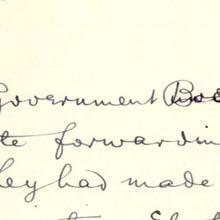 Government Boa
te forwardin
ley had made